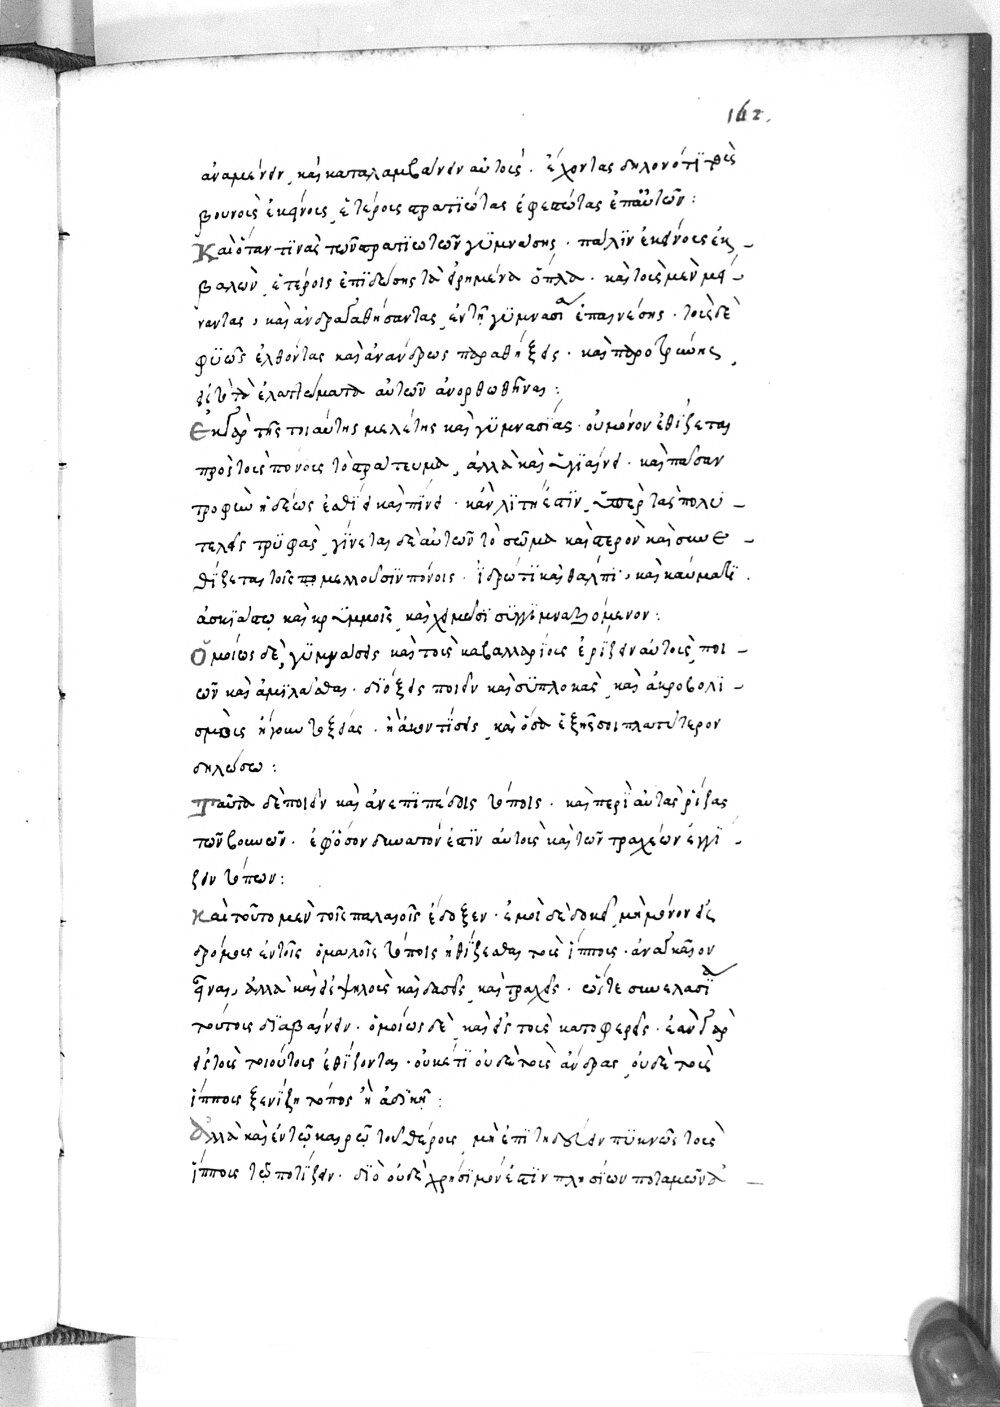 162.
ἀναμένειν, καὶ καταλαμβάνειν αὐτούς. ἔχοντας δηλονότι τοὺς
βουνοὺς ἐκείνους ἑτέρους στρατιώτας ἐφεστῶτας ἐπ' αὐτῶν:
Καὶ ὅταν τινὰς τῶν στρατιωτῶν γυμνάσης. πάλιν ἐκείνους ἐκ-
βαλὼν ἑτέροις ἐπιδώσης τὰ εἰρημένα ὅπλα. καὶ τοὺς μὲν μεί-
ναντας, καὶ ἀνδραγαθήσαντας ἐν τῇ γυμνασία ἐπαινέσης. τοὺς δὲ
φυγῶς ἐλθόντας καὶ ἀνάνδρως παραθήξεις. καὶ παροτρύνης
εἰς τὸ τὰ ἐλαττώματα αὐτῶν ἀνορθωθῆναι:
Ἐκ γὰρ τῆς τοιαύτης μελέτης καὶ γυμνασίας. οὐ μόνον ἐθίζεται
πρὸς τοὺς πόνους τὸ στράτευμα, ἀλλὰ καὶ ὑγιαίνει. καὶ πᾶσαν
τροφὴν ἡδέως ἐσθίει καὶ πίνει. κἂν λιτή ἐστιν, ὑπὲρ τὰς πολυ-
τελεῖς τρυφὰς γίνεται δὲ αὐτῶν τὸ σῶμα καὶ στερὸν καὶ συνε-
θίζεται τοῖς μέλλουσιν πόνοις. ἱδρῶτι καὶ θάλπει, καὶ καύματι
ἀσκιάστῳ καὶ κρυμμοῖς καὶ χειμῶσι συγγυμναζόμενον:
Ὁμοίως δὲ γυμνάσεις καὶ τοὺς καβαλλαρίους ἐρίζειν αὐτοὺς ποι-
ῶν καὶ ἁμιλλᾶσθαι. διώξεις ποιεῖν καὶ συμπλοκὰς καὶ ἀκροβολι-
σμοὺς ἤγουν τοξείας. ἢ ἀκοντίσεις, καὶ ὅσα ἑξῆς σοι πλατύτερον
δηλώσω:
Ταῦτα δὲ ποιεῖν καὶ ἐν ἐπιπέδοις τόποις. καὶ περὶ αὐτὰς ῥίζας
τῶν βουνῶν. ἐφ' ὅσον δυνατόν ἐστιν αὐτοὺς καὶ τῶν τραχέων ἐγγί-
ζειν τόπων:
Καὶ τοῦτο μὲν τοῖς παλαιοῖς ἔδοξεν. ἐμοὶ δὲ δοκεῖ, μὴ μόνον εἰς
δρόμους ἐν τοῖς ὁμαλοῖς τόποις ἠθίζεσθαι τοὺς ἵππους. ἀναγκαῖον
εἶναι, ἀλλὰ καὶ εἰς ὑψηλοὺς καὶ δασεῖς καὶ τραχεῖς. ὥστε συνελασία
τούτους διαβαίνειν. ὁμοίως δὲ καὶ εἰς τοὺς κατωφερεῖς. ἐὰν γὰρ
εἰς τοὺς τοιούτους ἐθίζονται. οὐκέτι οὐδὲ τοὺς ἄνδρας οὐδὲ τοὺς
ἵππους ξενίζη τόπος ἢ ἀδικῆ:
Ἀλλὰ καὶ ἐν τῷ καιρῷ τοῦ θέρους μὴ ἐπιτηδεύειν πυκνῶς τοὺς
ἵππους τῷ ποτίζειν. διὸ οὐδὲ χρήσιμόν ἐστιν πλησίων ποταμῶν ἀ-